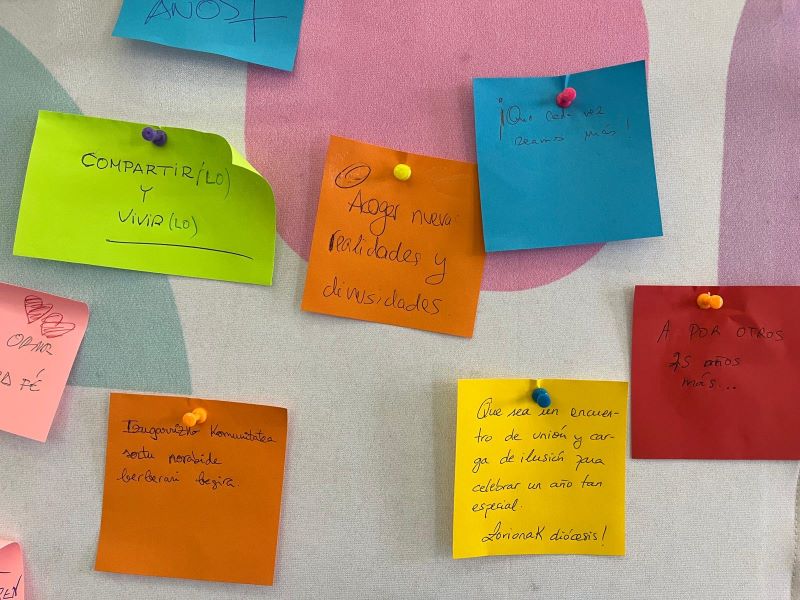 AÑOS+
COMPARTIR(LO)
Y
VIVIR(LO)
Acoger nueva
realidades y
diversidades.
¡Que cada vez
seamos más!
ORAR
FÉ
A POR OTROS
75 años
más...
Izugarrizko Komunitatea
sortu norabide
berberari begira.
Que sea un encuen-
tro de unión y car-
ga de ilusión para
celebrar un año tan
especial.
Zorionak diócesis!